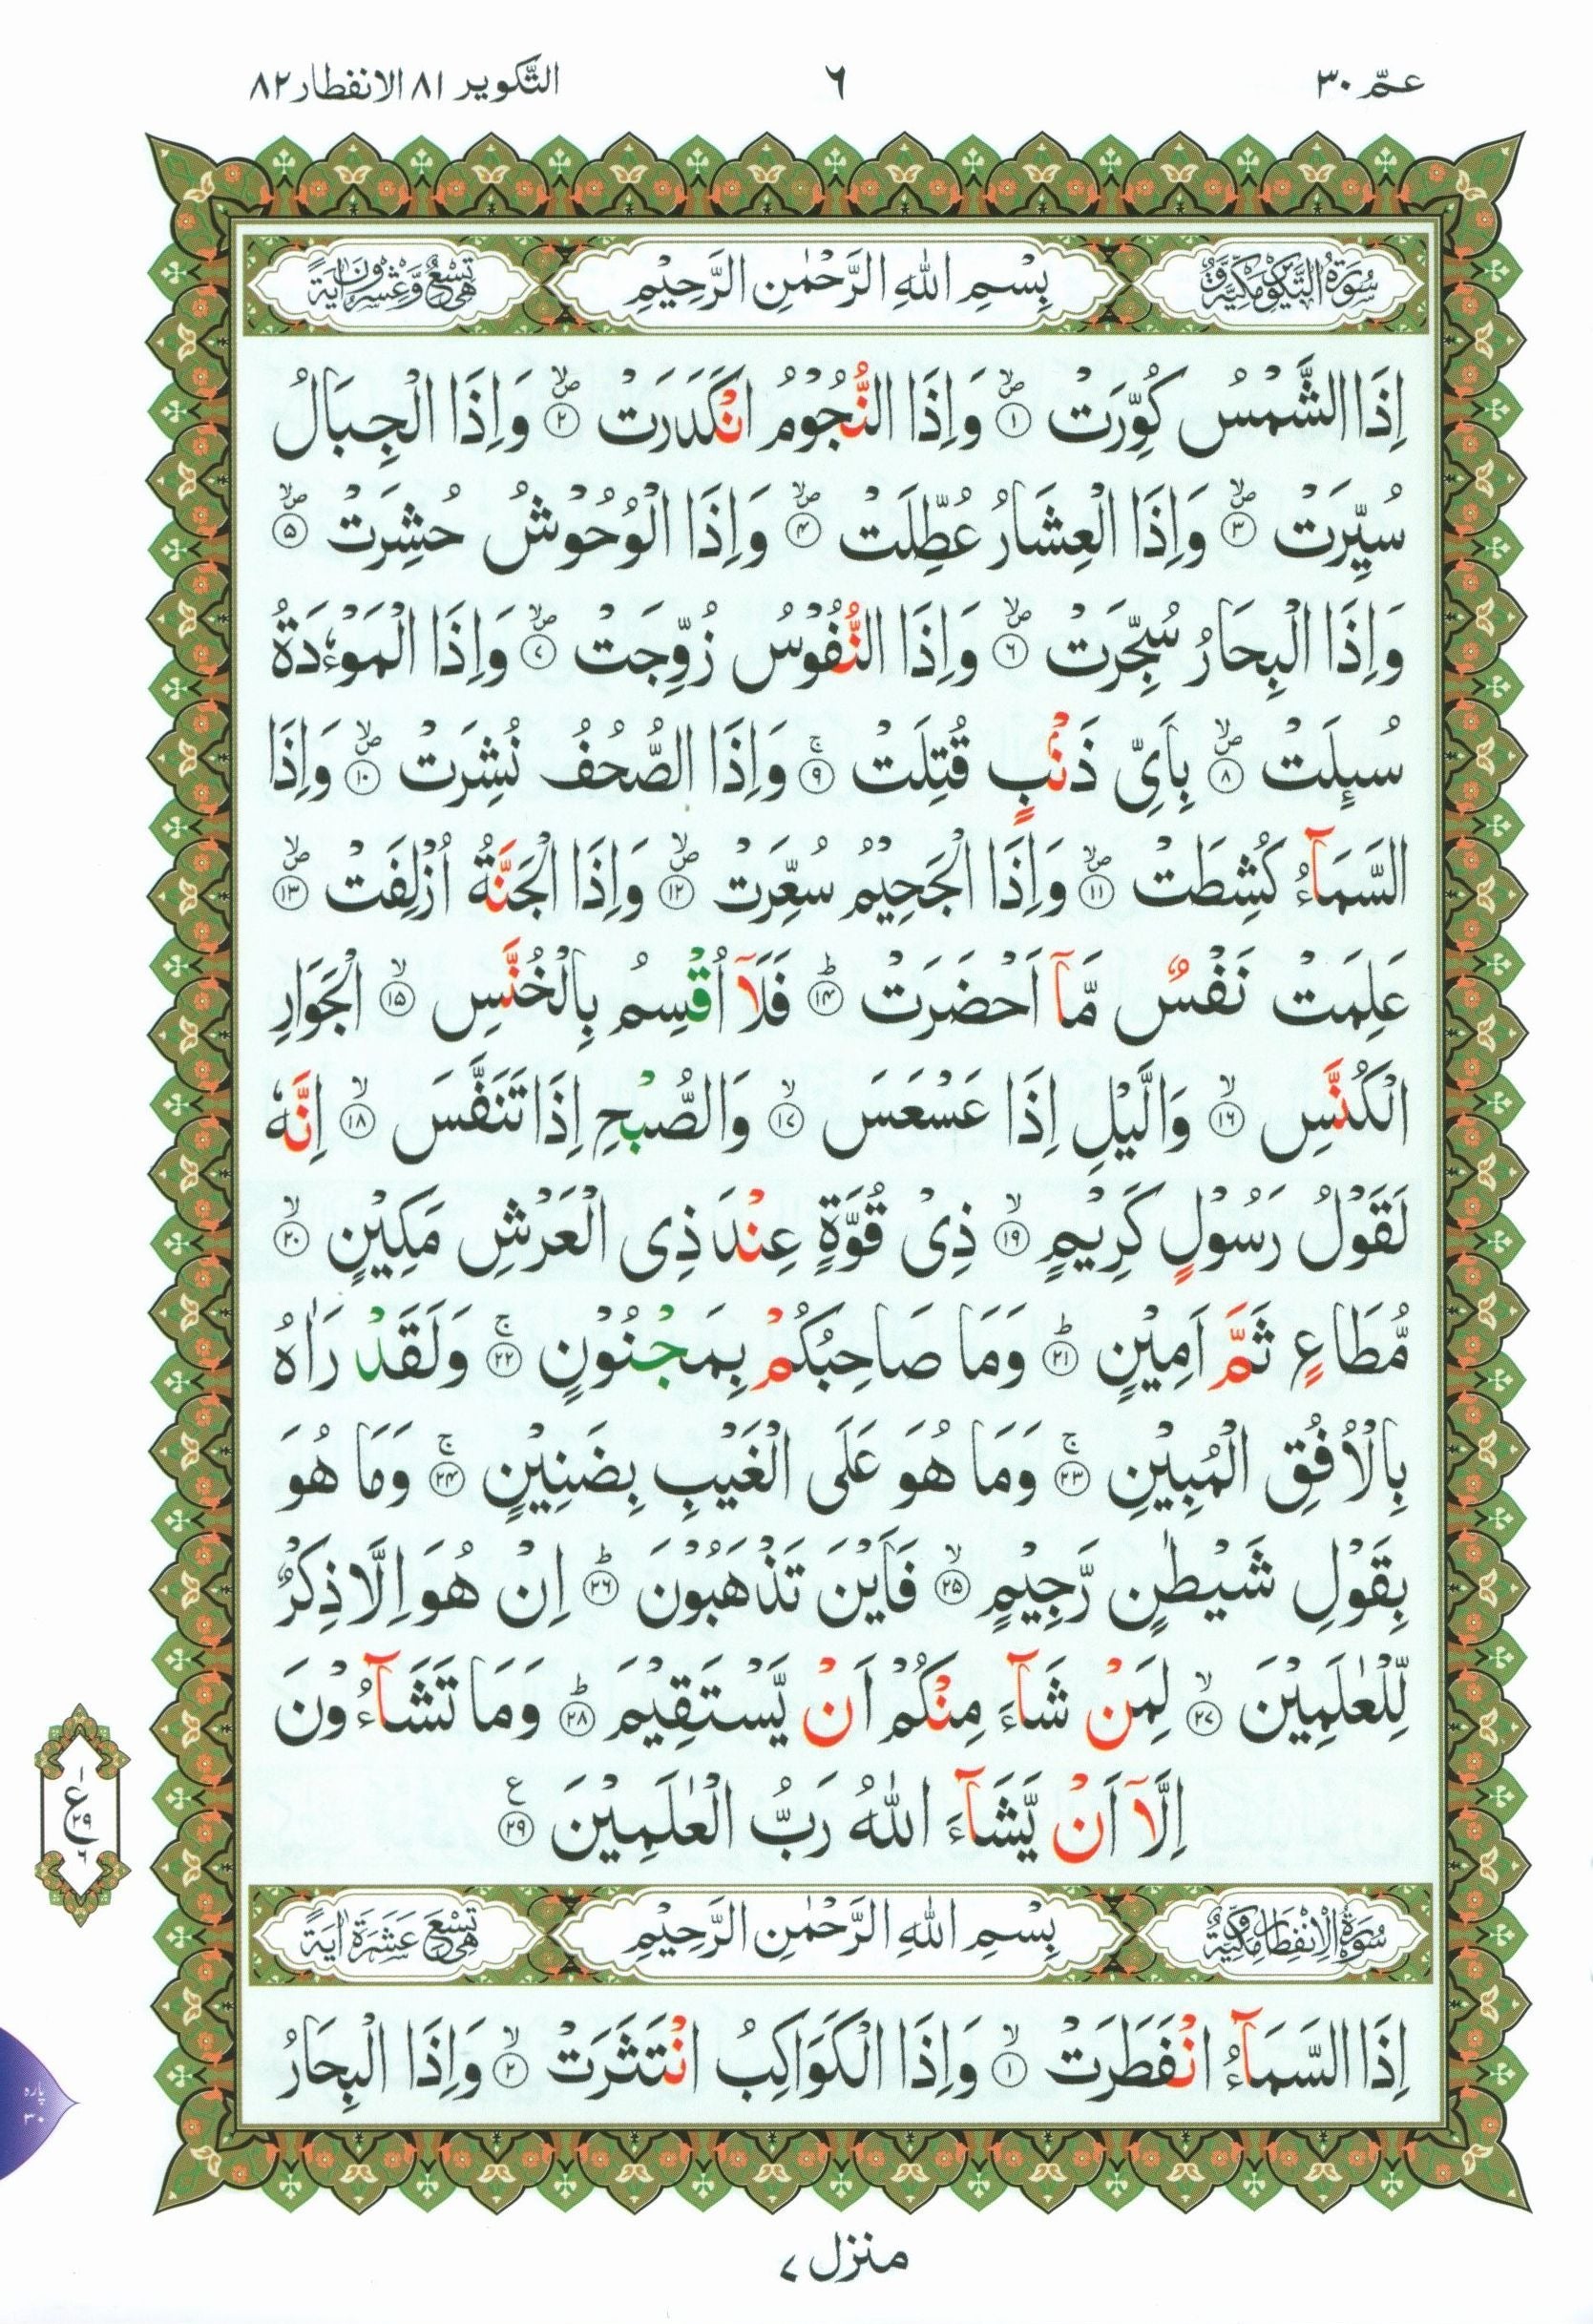 عمّ ٣٠
٦
التّكوير ٨١ الانفطار ٨٢
سُوْرَةُ التَّكْوِيْرِ مَكِّيَّةٌ
بِسْمِ اللهِ الرَّحْمٰنِ الرَّحِيْمِ
هِيَ تِسْعٌ وَّعِشْرُوْنَ اٰيَةً
اِذَا الشَّمْسُ كُوِّرَتْ ۪ۙ ﴿۱﴾ وَاِذَا النُّجُوْمُ انْكَدَرَتْ ۪ۙ ﴿۲﴾ وَاِذَا الْجِبَالُ
سُيِّرَتْ ۪ۙ ﴿۳﴾ وَاِذَا الْعِشَارُ عُطِّلَتْ ۪ۙ ﴿۴﴾ وَاِذَا الْوُحُوْشُ حُشِرَتْ ۪ۙ ﴿۵﴾
وَاِذَا الْبِحَارُ سُجِّرَتْ ۪ۙ ﴿۶﴾ وَاِذَا النُّفُوْسُ زُوِّجَتْ ۪ۙ ﴿۷﴾ وَاِذَا الْمَوْءٗدَةُ
سُىِٕلَتْ ۪ۙ ﴿۸﴾ بِاَىِّ ذَنْۢبٍ قُتِلَتْ ۚ ﴿۹﴾ وَاِذَا الصُّحُفُ نُشِرَتْ ۪ۙ ﴿۱۰﴾ وَاِذَا
السَّمَآءُ كُشِطَتْ ۪ۙ ﴿۱۱﴾ وَاِذَا الْجَحِيْمُ سُعِّرَتْ ۪ۙ ﴿۱۲﴾ وَاِذَا الْجَنَّةُ اُزْلِفَتْ ۪ۙ ﴿۱۳﴾
عَلِمَتْ نَفْسٌ مَّآ اَحْضَرَتْ ؕ ﴿۱۴﴾ فَلَآ اُقْسِمُ بِالْخُنَّسِ ۙ ﴿۱۵﴾ الْجَوَارِ
الْكُنَّسِ ۙ ﴿۱۶﴾ وَالَّيْلِ اِذَا عَسْعَسَ ۙ ﴿۱۷﴾ وَالصُّبْحِ اِذَا تَنَفَّسَ ۙ ﴿۱۸﴾ اِنَّهٗ
لَقَوْلُ رَسُوْلٍ كَرِيْمٍ ۙ ﴿۱۹﴾ ذِىْ قُوَّةٍ عِنْدَ ذِى الْعَرْشِ مَكِيْنٍ ۙ ﴿۲۰﴾
مُّطَاعٍ ثَمَّ اَمِيْنٍ ؕ ﴿۲۱﴾ وَمَا صَاحِبُكُمْ بِمَجْنُوْنٍ ۚ ﴿۲۲﴾ وَلَقَدْ رَاٰهُ
بِالْاُفُقِ الْمُبِيْنِ ۚ ﴿۲۳﴾ وَمَا هُوَ عَلَى الْغَيْبِ بِضَنِيْنٍ ۚ ﴿۲۴﴾ وَمَا هُوَ
بِقَوْلِ شَيْطٰنٍ رَّجِيْمٍ ۙ ﴿۲۵﴾ فَاَيْنَ تَذْهَبُوْنَ ؕ ﴿۲۶﴾ اِنْ هُوَ اِلَّا ذِكْرٌ
لِّلْعٰلَمِيْنَ ۙ ﴿۲۷﴾ لِمَنْ شَآءَ مِنْكُمْ اَنْ يَّسْتَقِيْمَ ؕ ﴿۲۸﴾ وَمَا تَشَآءُوْنَ
اِلَّآ اَنْ يَّشَآءَ اللّٰهُ رَبُّ الْعٰلَمِيْنَ ﴿۲۹﴾ ع
۱
ع
۲۹
۶
سُوْرَةُ الْاِنْفِطَارِ مَكِّيَّةٌ
بِسْمِ اللهِ الرَّحْمٰنِ الرَّحِيْمِ
هِيَ تِسْعَ عَشَرَةَ اٰيَةً
اِذَا السَّمَآءُ انْفَطَرَتْ ۙ ﴿۱﴾ وَاِذَا الْكَوَاكِبُ انْتَثَرَتْ ۙ ﴿۲﴾ وَاِذَا الْبِحَارُ
پاره
۳۰
منزل ۷